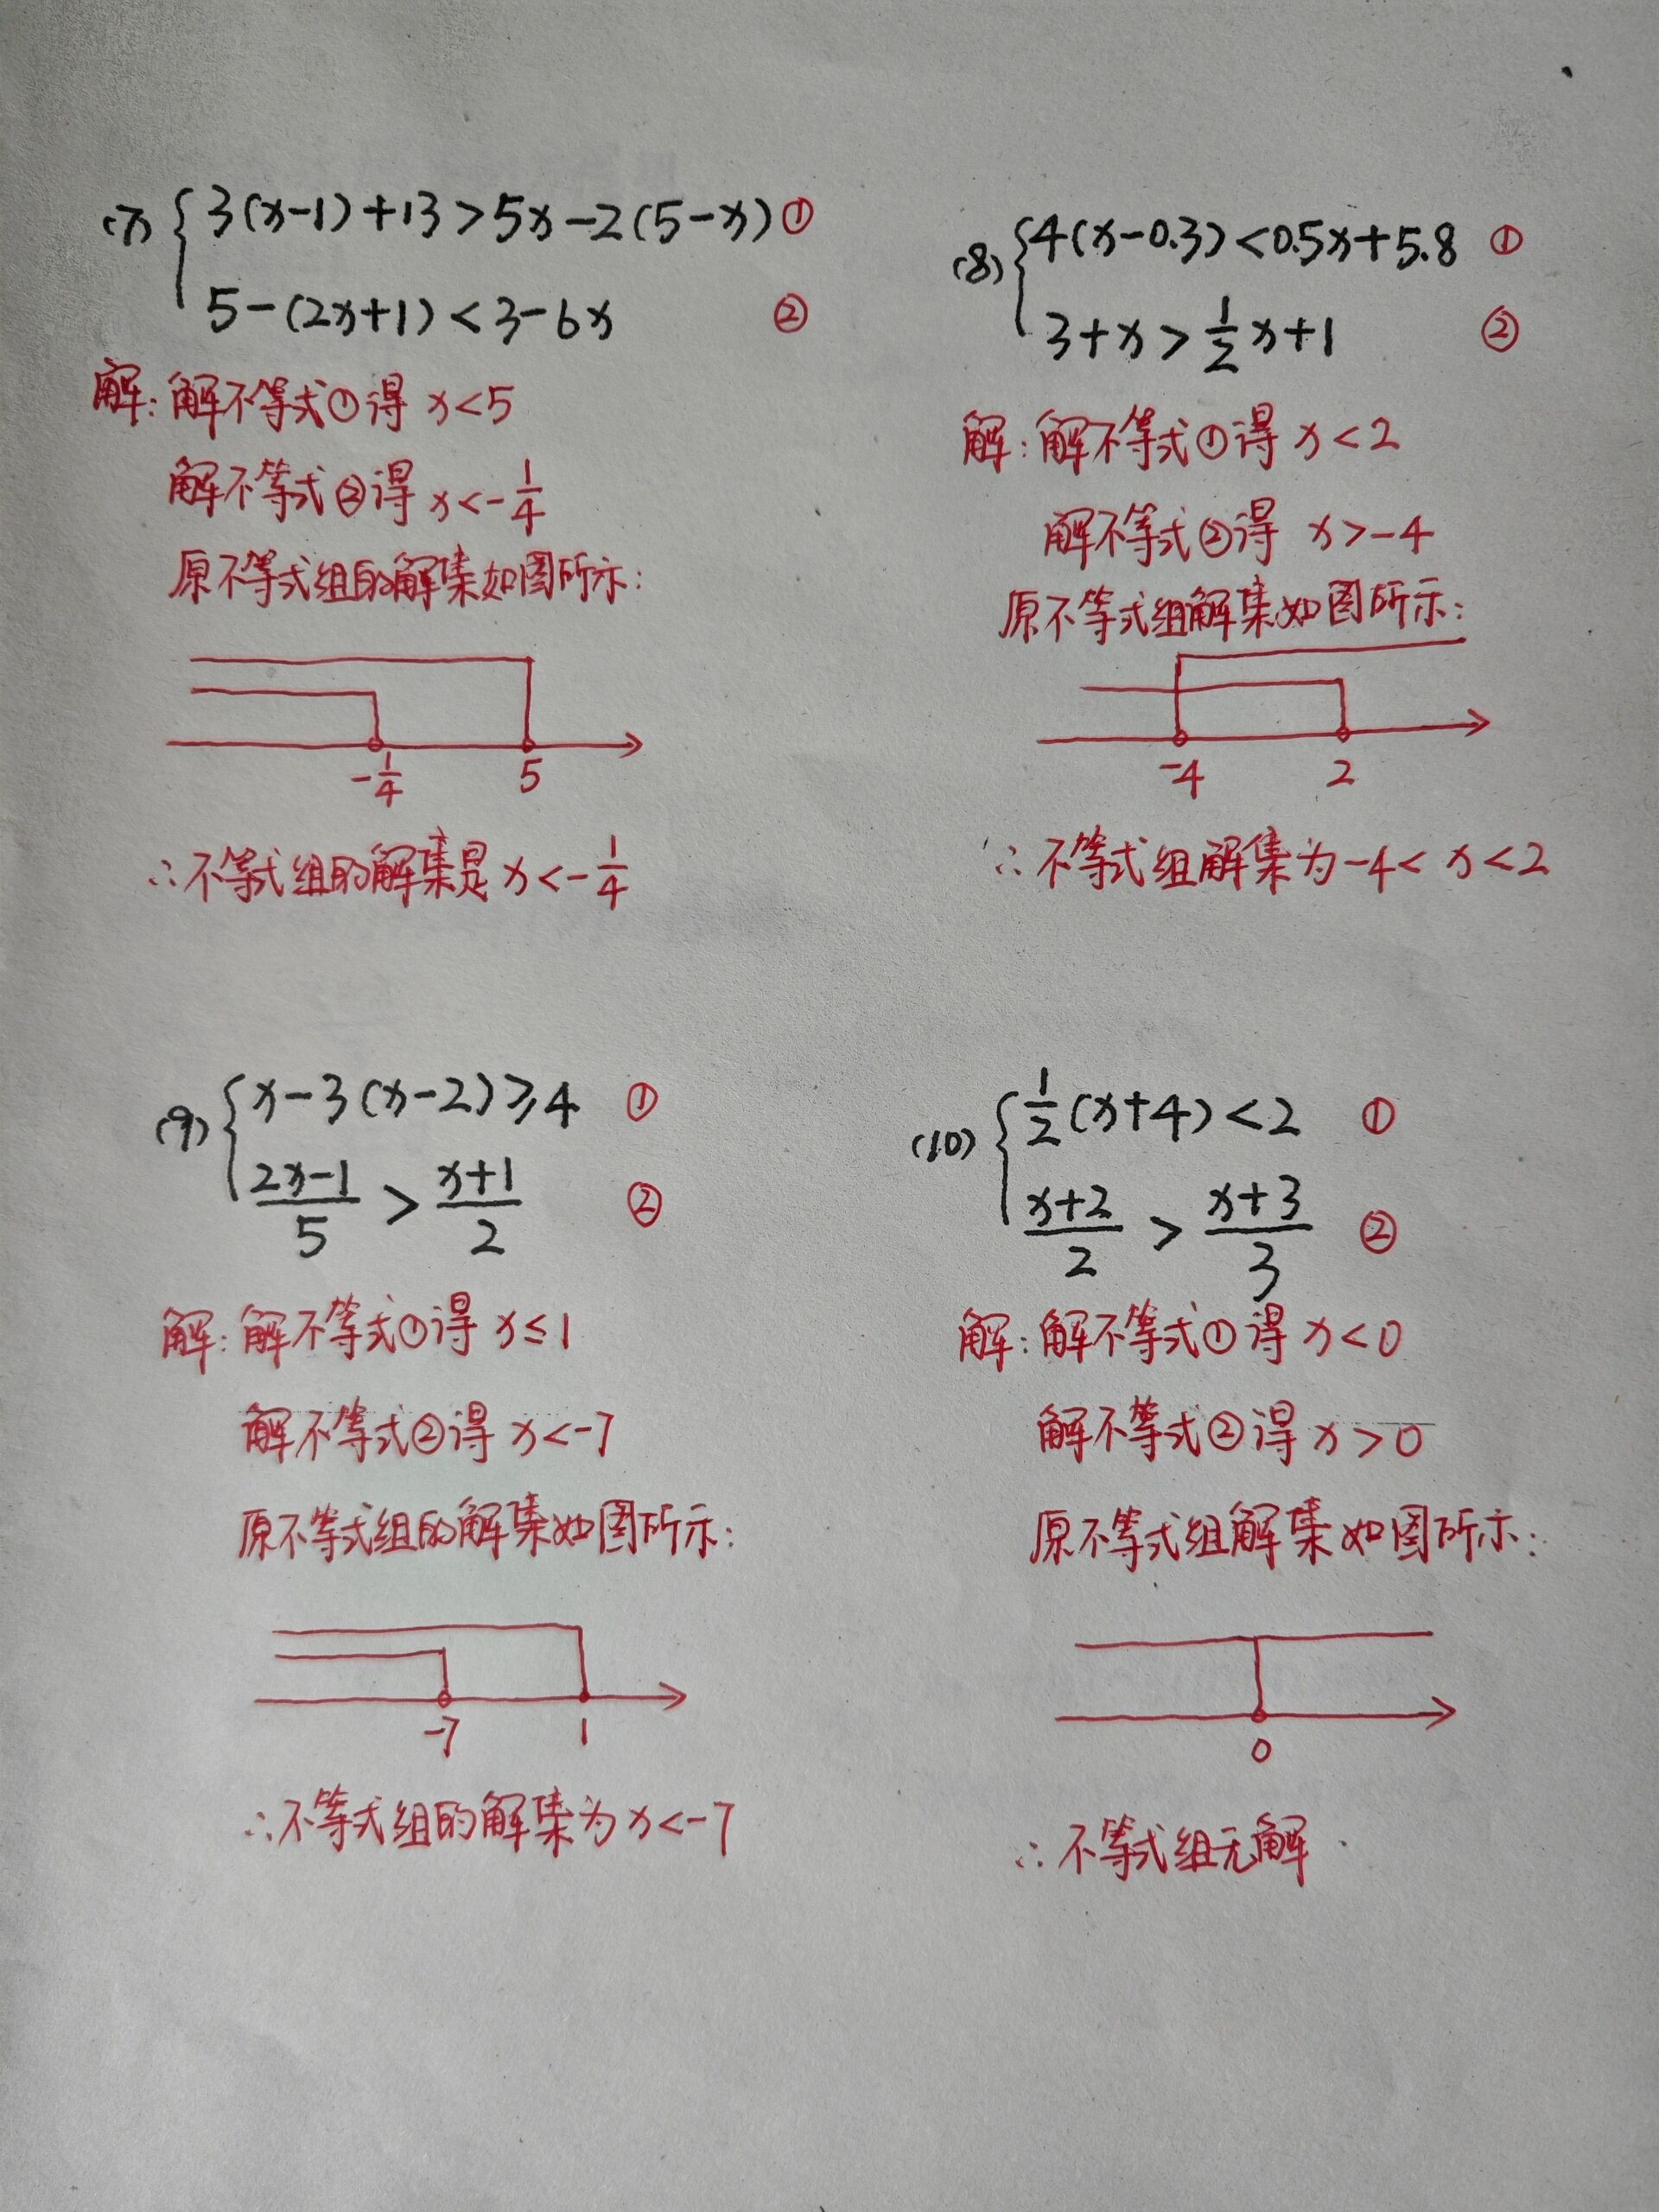 (7) { 3(x-1)+13>5x-2(5-x) ①
5-(2x+1)<3-6x ②
解:解不等式①得 x<5
解不等式②得 x<-1/4
原不等式组的解集如图所示:
-1/4 5
∴不等式组的解集是 x<-1/4
(8) { 4(x-0.3)<0.5x+5.8 ①
3+x>1/2x+1 ②
解:解不等式①得 x<2
解不等式②得 x>-4
原不等式组解集如图所示:
-4 2
∴不等式组解集为-4<x<2
(9) { x-3(x-2)≥4 ①
(2x-1)/5 > (x+1)/2 ②
解:解不等式①得 x≤1
解不等式②得 x<-7
原不等式组的解集如图所示:
-7 1
∴不等式组的解集为 x<-7
(10) { 1/2(x+4)<2 ①
(x+2)/2 > (x+3)/3 ②
解:解不等式①得 x<0
解不等式②得 x>0
原不等式组解集如图所示:
0
∴不等式组无解